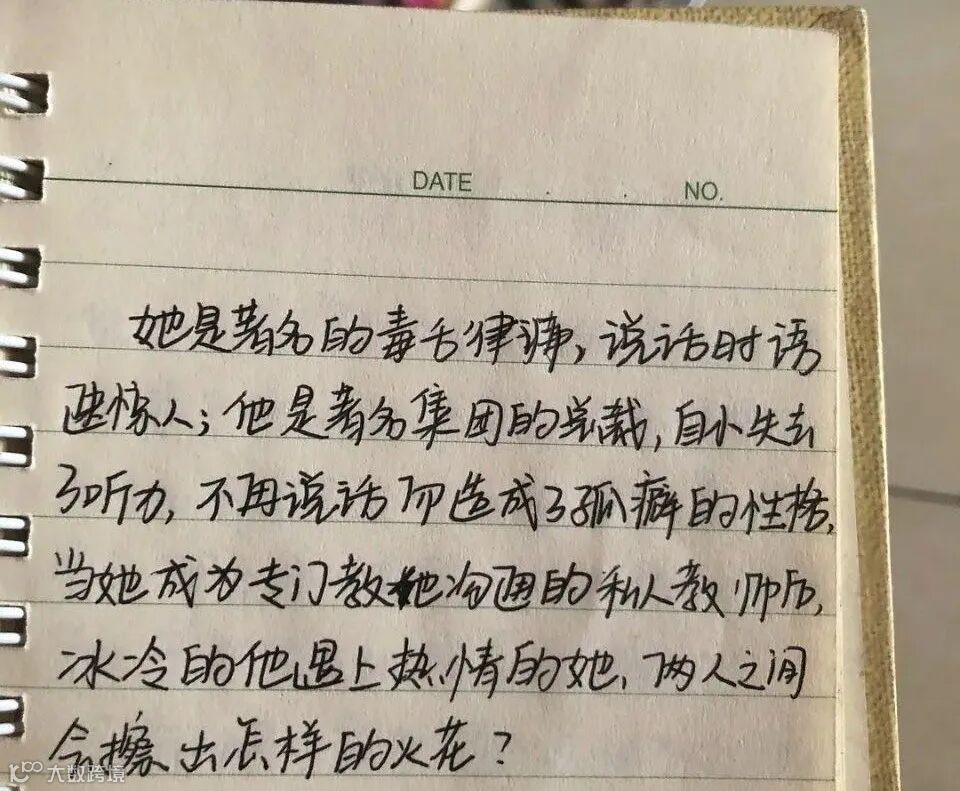 DATE NO.
她是著名的毒舌律师,说话时语
出惊人;他是著名集团的总裁,自小失去
了听力,不再说话而造成了孤癖的性格,
当她成为专门教他沟通的私人教师后,
冰冷的他遇上热情的她,两人之间
会擦出怎样的火花?
大数跨境